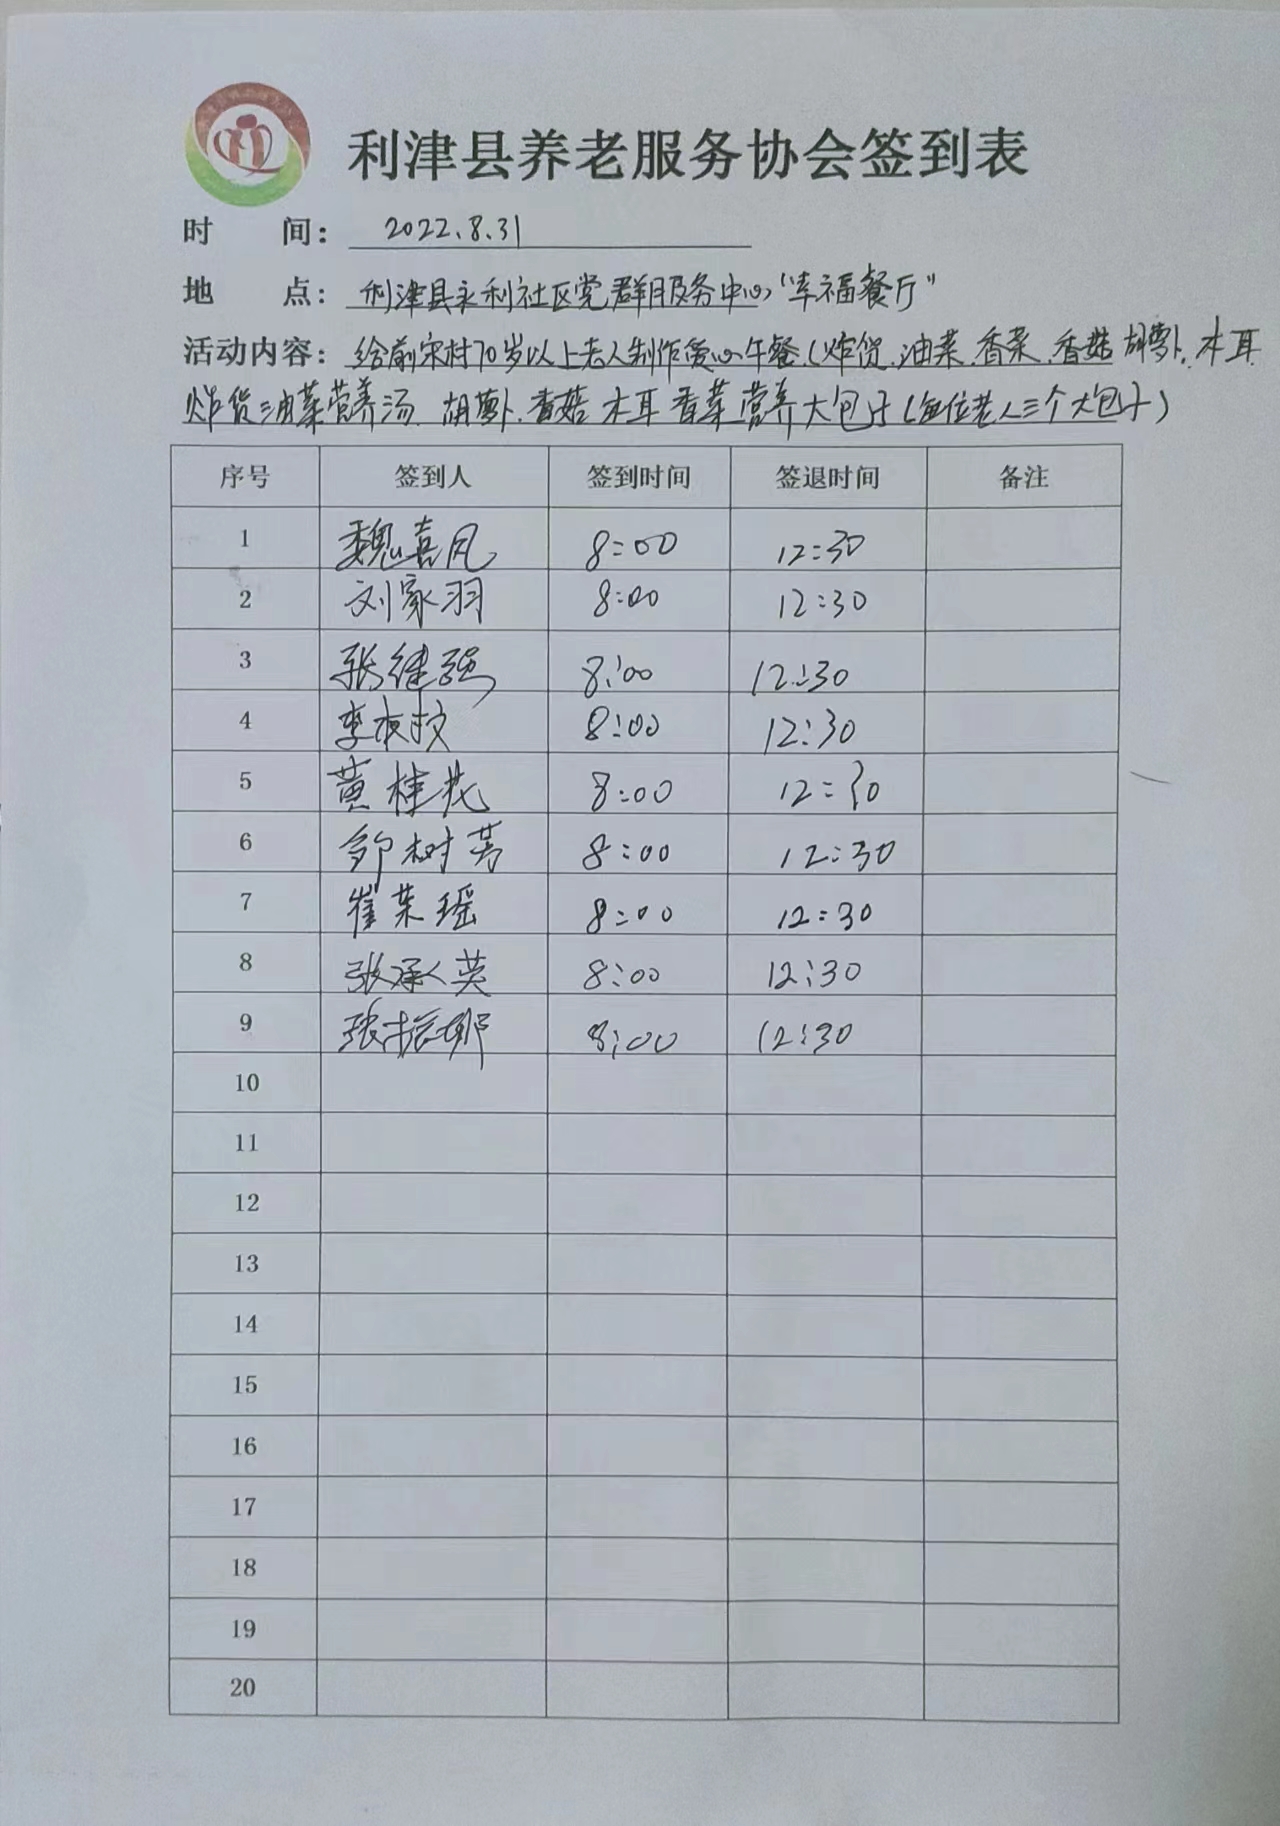 利津县养老服务协会签到表
时 间： 2022.8.31
地 点： 利津县永利社区党群服务中心"幸福餐厅"
活动内容： 给前宋村70岁以上老人制作爱心午餐（炸货.油菜.香菜.香菇.胡萝卜.木耳
炸货油菜营养汤.胡萝卜.香菇木耳香菜营养大包子（每位老人三个大包子）
序号 签到人 签到时间 签退时间 备注
1 魏喜凤 8:00 12:30
2 刘家羽 8:00 12:30
3 张继强 8:00 12:30
4 李 8:00 12:30
5 黄桂花 8:00 12:30
6 邹树芳 8:00 12:30
7 崔荣瑶 8:00 12:30
8 张承英 8:00 12:30
9 张振娜 8:00 12:30
10
11
12
13
14
15
16
17
18
19
20